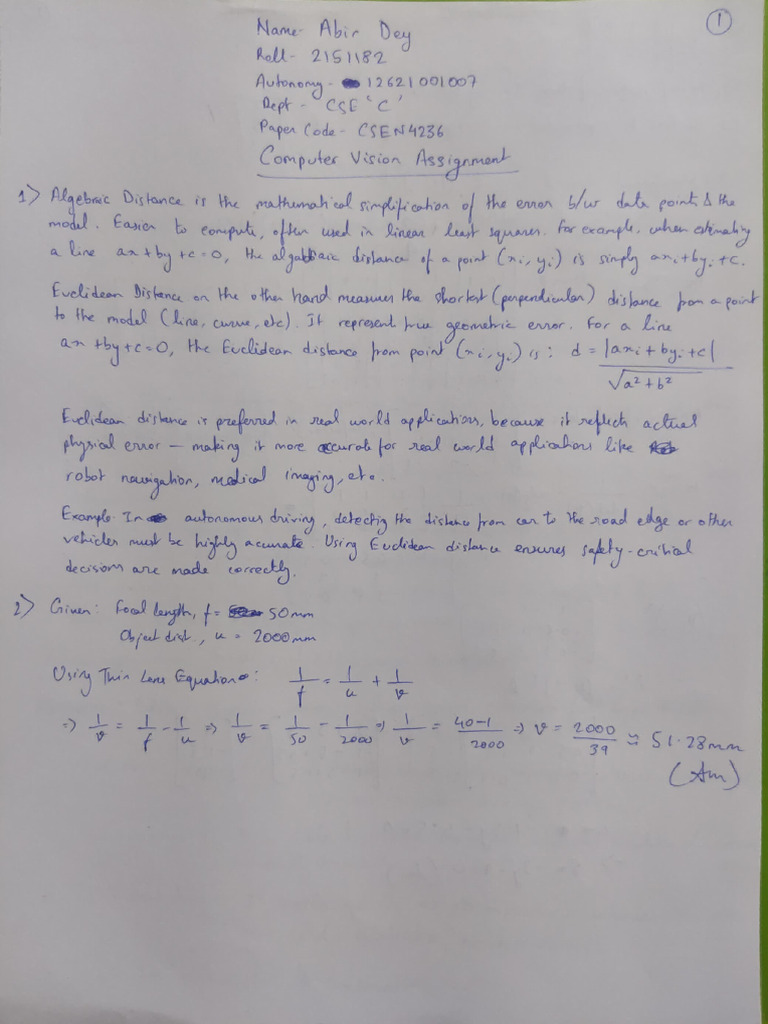 1
Name- Abir Dey
Roll- 2151182
Autonomy- 12621001007
Dept- CSE 'C'
Paper Code- CSEN4236
Computer Vision Assignment
1) Algebraic Distance is the mathematical simplification of the error b/w data points & the
model. Easier to compute, often used in linear least squares. For example, when estimating
a line ax+by+c=0, the algebraic distance of a point (xi, yi) is simply axi+byi+c.
Euclidean Distance on the other hand measures the shortest (perpendicular) distance from a point
to the model (line, curve, etc). It represent true geometric error. For a line
ax+by+c=0, the Euclidean distance from point (xi, yi) is: d = |axi+byi+c| / √a²+b²
Euclidean distance is preferred in real world applications, because it reflects actual
physical error — making it more accurate for real world applications like
robot navigation, medical imaging, etc.
Example- In autonomous driving, detecting the distance from car to the road edge or other
vehicles must be highly accurate. Using Euclidean distance ensures safety-critical
decisions are made correctly.
2) Given: Focal length, f = 50mm
Object dist, u = 2000mm
Using Thin Lens Equation: 1/f = 1/u + 1/v
=> 1/v = 1/f - 1/u => 1/v = 1/50 - 1/2000 => 1/v = 40-1/2000 => v = 2000/39 ≈ 51.28mm
(Ans)